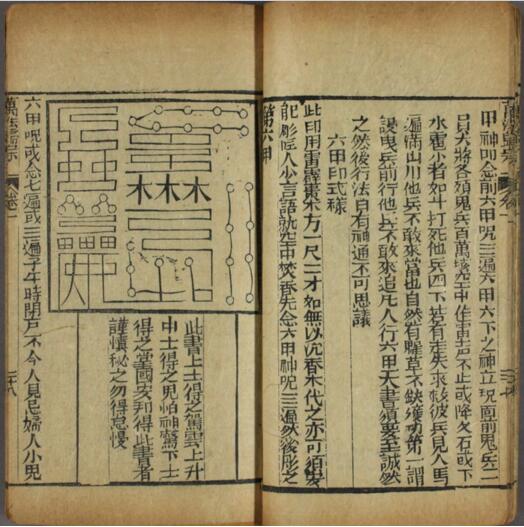 甲神咒念前六甲咒三遍六甲六下之神立現面前鬼兵二
員大將各領鬼兵百萬騰空中作雷声不止或降石或下
水雹少者如斗打死他兵四下若有走失求救彼兵見人馬
遍滿山川他兵不敢來當也自然有糧草不缺獲功第一謂
曳兵前行他兵不敢來追凡人行六甲天書須要至誠然
之然後行法自有神通不可思議
六甲印式樣
此印用雷霹棗木方一尺二寸如無以沉香木代之亦可須要
能彫匠人少言語就空中焚香先念六甲神咒三遍然後彫之
第六甲
木木木
此書上士得之駕雲上升
中士得之鬼怕神驚下士
得之掌國安邦得此書者
謹慎秘之勿得怠慢
六甲咒或念七遍或三遍子午時閉戶不令人見尼婦人小兒
萬法歸宗
卷二
二十八